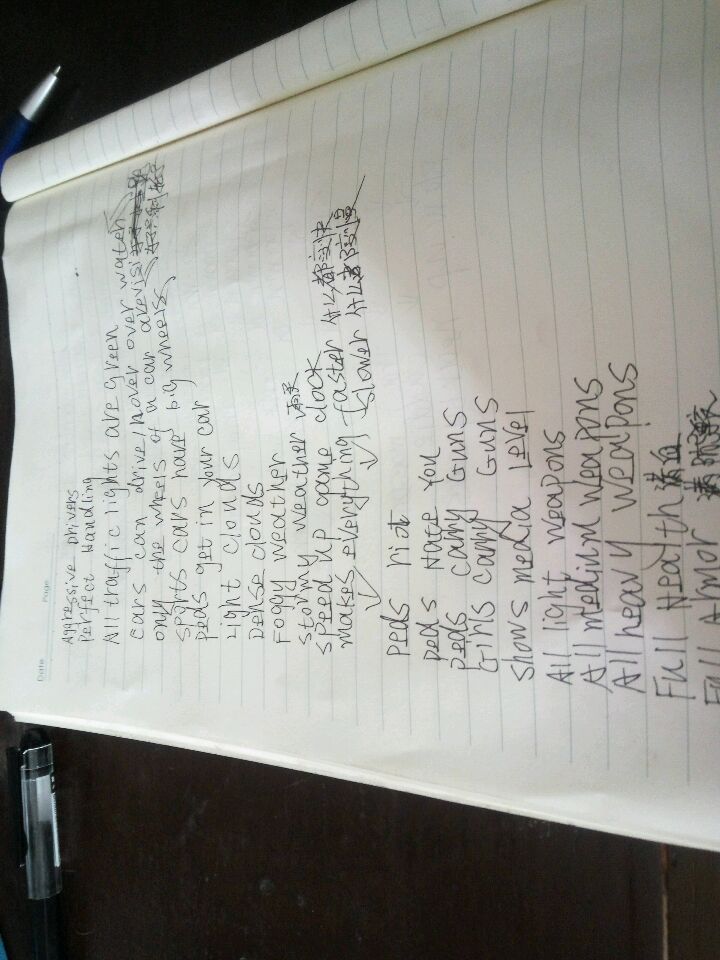 Date Page
Aggressive Drivers
Perfect Handing
All traffic lights are green
cars can drive/hover over water
only the wheels of a car are visi
sports cars have big wheels
Peds get in your car
Light clouds
Dense clouds
Foggy weather
stormy weather
speed up game clock
makes everything faster 什么都变快
slower 什么都变慢
peds riot
peds Hate You
peds carry Guns
Girls carry Guns
shows media Level
All light weapons
All medium weapons
All heavy weapons
Full Health 满血
Full Armor